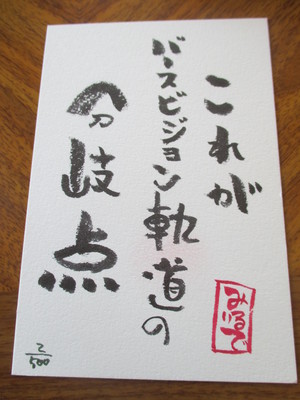 これが
バースビジョン軌道の
分岐点
みるで
2/500